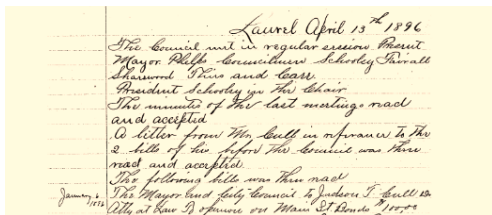 Laurel April 13th 1896
The Council met in regular session. Present
Mayor Phelps Councilmen Schooley Fairall
Sharewood Thins and Carr
President Schooley in the Chair
The minutes of the last meeting read
and accepted
A letter from Mr. Cull in referance to the
2 bills of his before the Council was there
read and accepted.
The following bills was then read
January 6
1896
The Mayor and City Council to Judson T. Cull Dr
Atty at Law To opinion on Main St Bonds $100.00